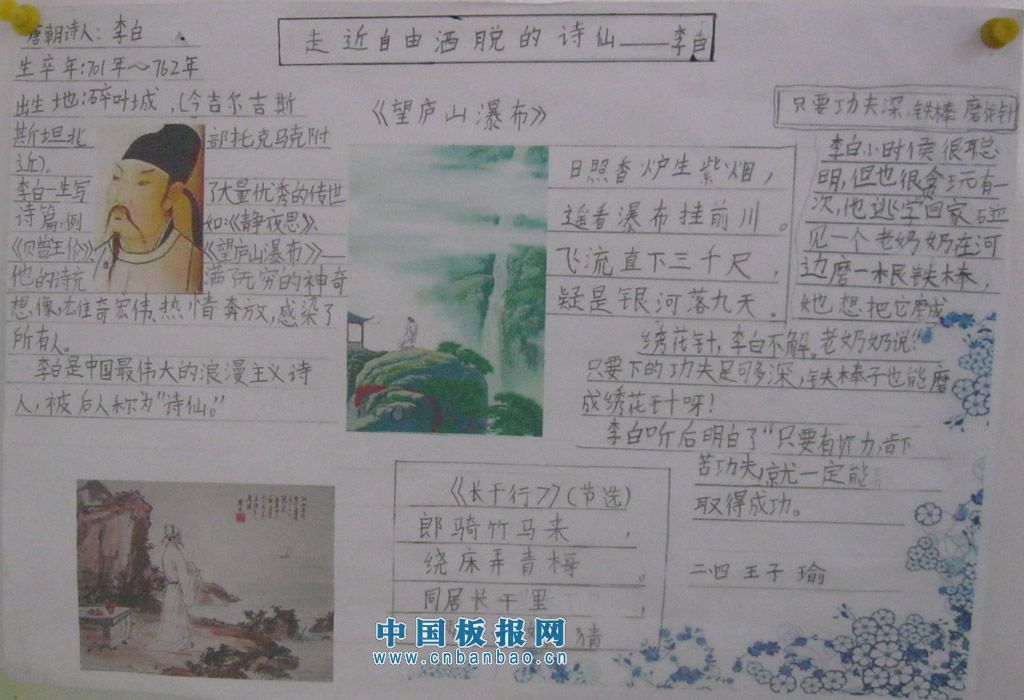 走近自由洒脱的诗仙——李白
唐朝诗人：李白
生卒年:701年～762年
出生地:碎叶城，(今吉尔吉斯
斯坦北部托克马克附
近)。
李白一生写了大量优秀的传世
诗篇,例如:《静夜思》、
《望庐山瀑布》—
他的诗充满了无穷的神奇
想像,雄奇宏伟、热情奔放,感染了
所有人。
李白是中国最伟大的浪漫主义诗
人,被后人称为"诗仙。"
《望庐山瀑布》
日照香炉生紫烟，
遥看瀑布挂前川。
飞流直下三千尺，
疑是银河落九天。
只要功夫深,铁棒磨成针
李白小时候很聪
明,但也很贪玩有一
次,他逃学回家碰
见一个老奶奶在河
边磨一根铁棒,
她想把它磨成
绣花针,李白不解。老奶奶说:"
只要下的功夫足够多深,铁棒子也能磨
成绣花针呀!
李白听后明白了"只要有毅力,肯下
苦功夫,就一定能
取得成功。
《长干行》(节选)
郎骑竹马来，
绕床弄青梅。
同居长干里，
猜
二四 王子瑜
中国板报网
www.cnbanbao.cn